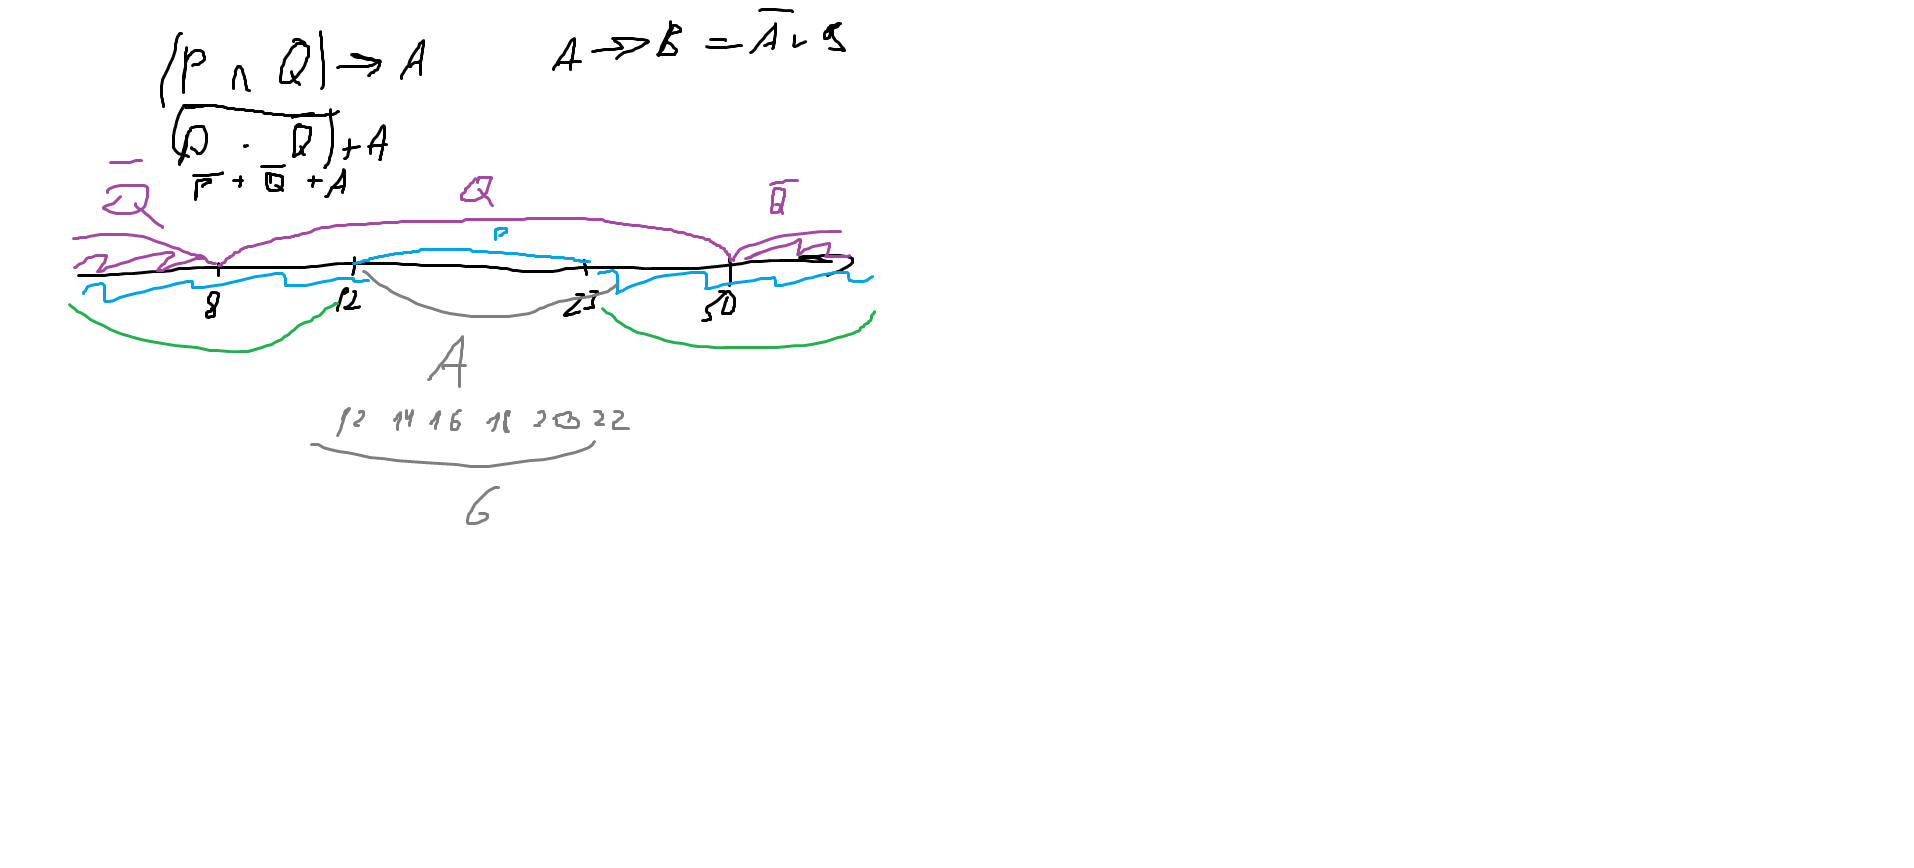 (P ∩ Q) → A    A → B = A̅ ∨ B
(P · Q) + A
P̅ + Q̅ + A
Q̅    Q    Q̅
P
8    12    23    50
A
12 14 16 18 20 22
6